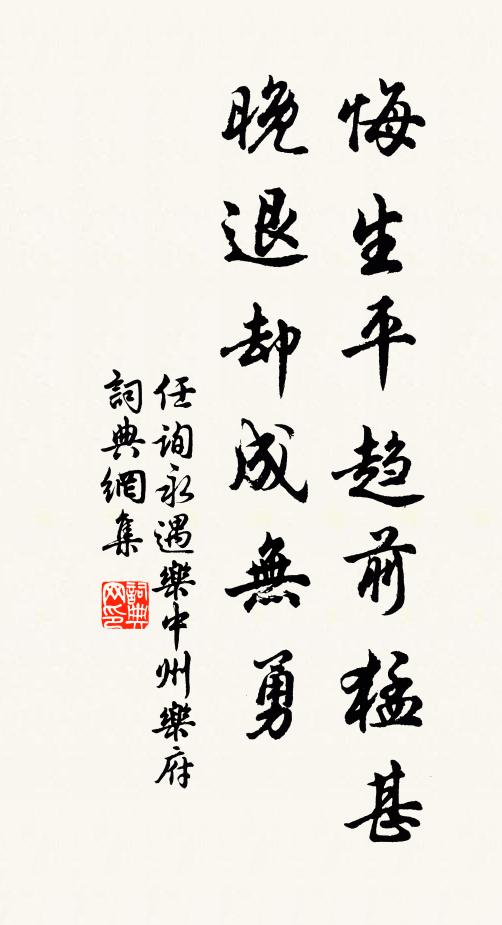 悔生平趋前猛甚
晚退却成無勇
任詢永遇樂中州樂府
詞典網集
詞典网印